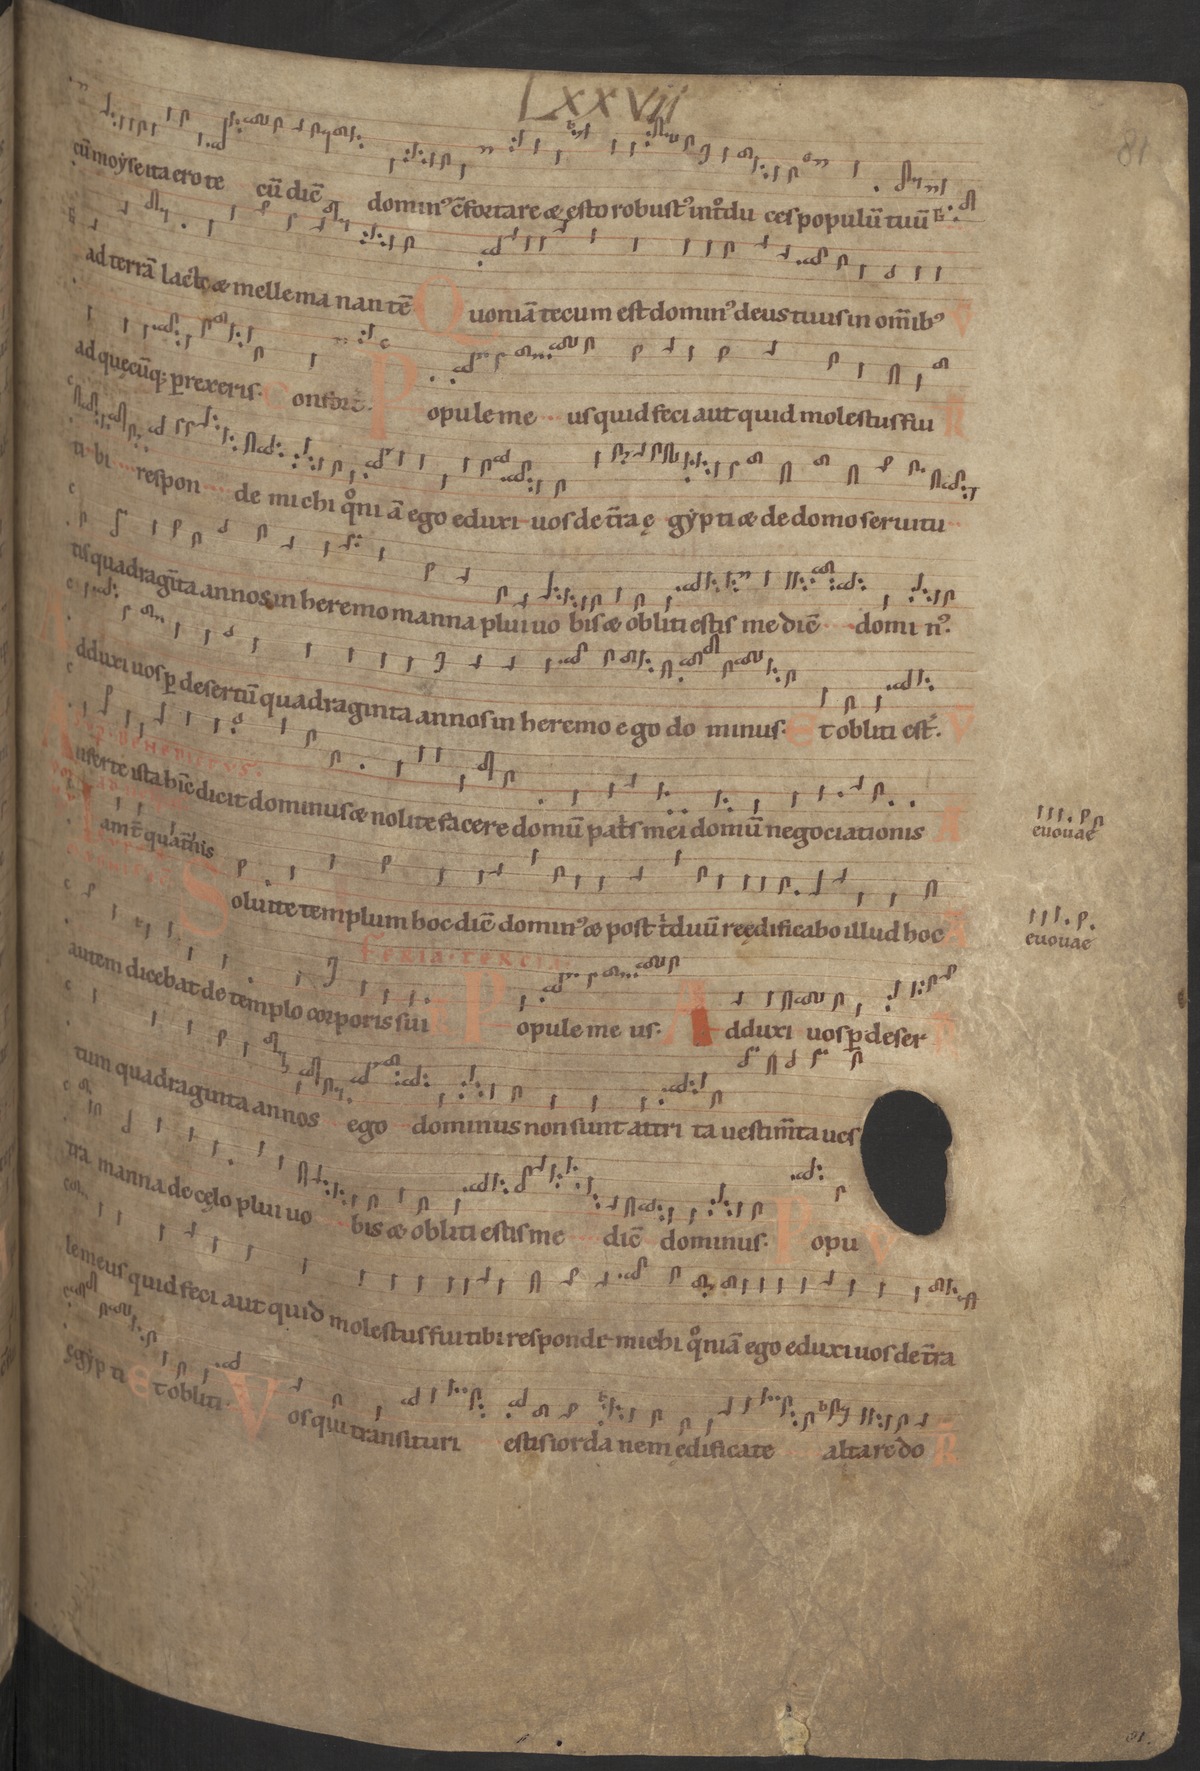 LXXVII
81
cū moẏse ita ero te cū diē dominꝰ cōfortare & esto robustꝰ in tͦdu ces populū tuū
ad terrā lacte & melle ma nan tē Quoniā tecum est dominꝰ deus tuus in om̄ibꝰ V
ad quęcūq; ꝑrexeris. Confort. Popule me us quid feci aut quid molestus fui R
ti bi respon de michi qͦni ā ego eduxi uos de t̄ra ę gẏpti & de domo seruitu
tis quadragīta annos in heremo manna plui uo bis & obliti estis me diē domi nꝰ.
Adduxi uos ꝑ desertū quadraginta annos in heremo ego do minus. Et obliti est. V
Auferte ista hīc dicit dominus & nolite facere domū pat̄s mei domū negociationis A
euouae
Soluite templum hoc diē dominꝰ & post t̄duū reędificabo illud hoc A
euouae
autem dicebat de templo corporis sui feria tertia Popule me us. Adduxi uos ꝑ deser
tum quadraginta annos ego dominus non sunt attri ta uestim̄ta ues
tra manna de cęlo plui uo bis & obliti estis me diē dominus. Popu V
le meus quid feci aut quid molestus fui tibi responde michi qͦniā ego eduxi uos de t̄ra
ęgẏp ti Et obliti. Vos qui transituri estis iorda nem edificate altare do R